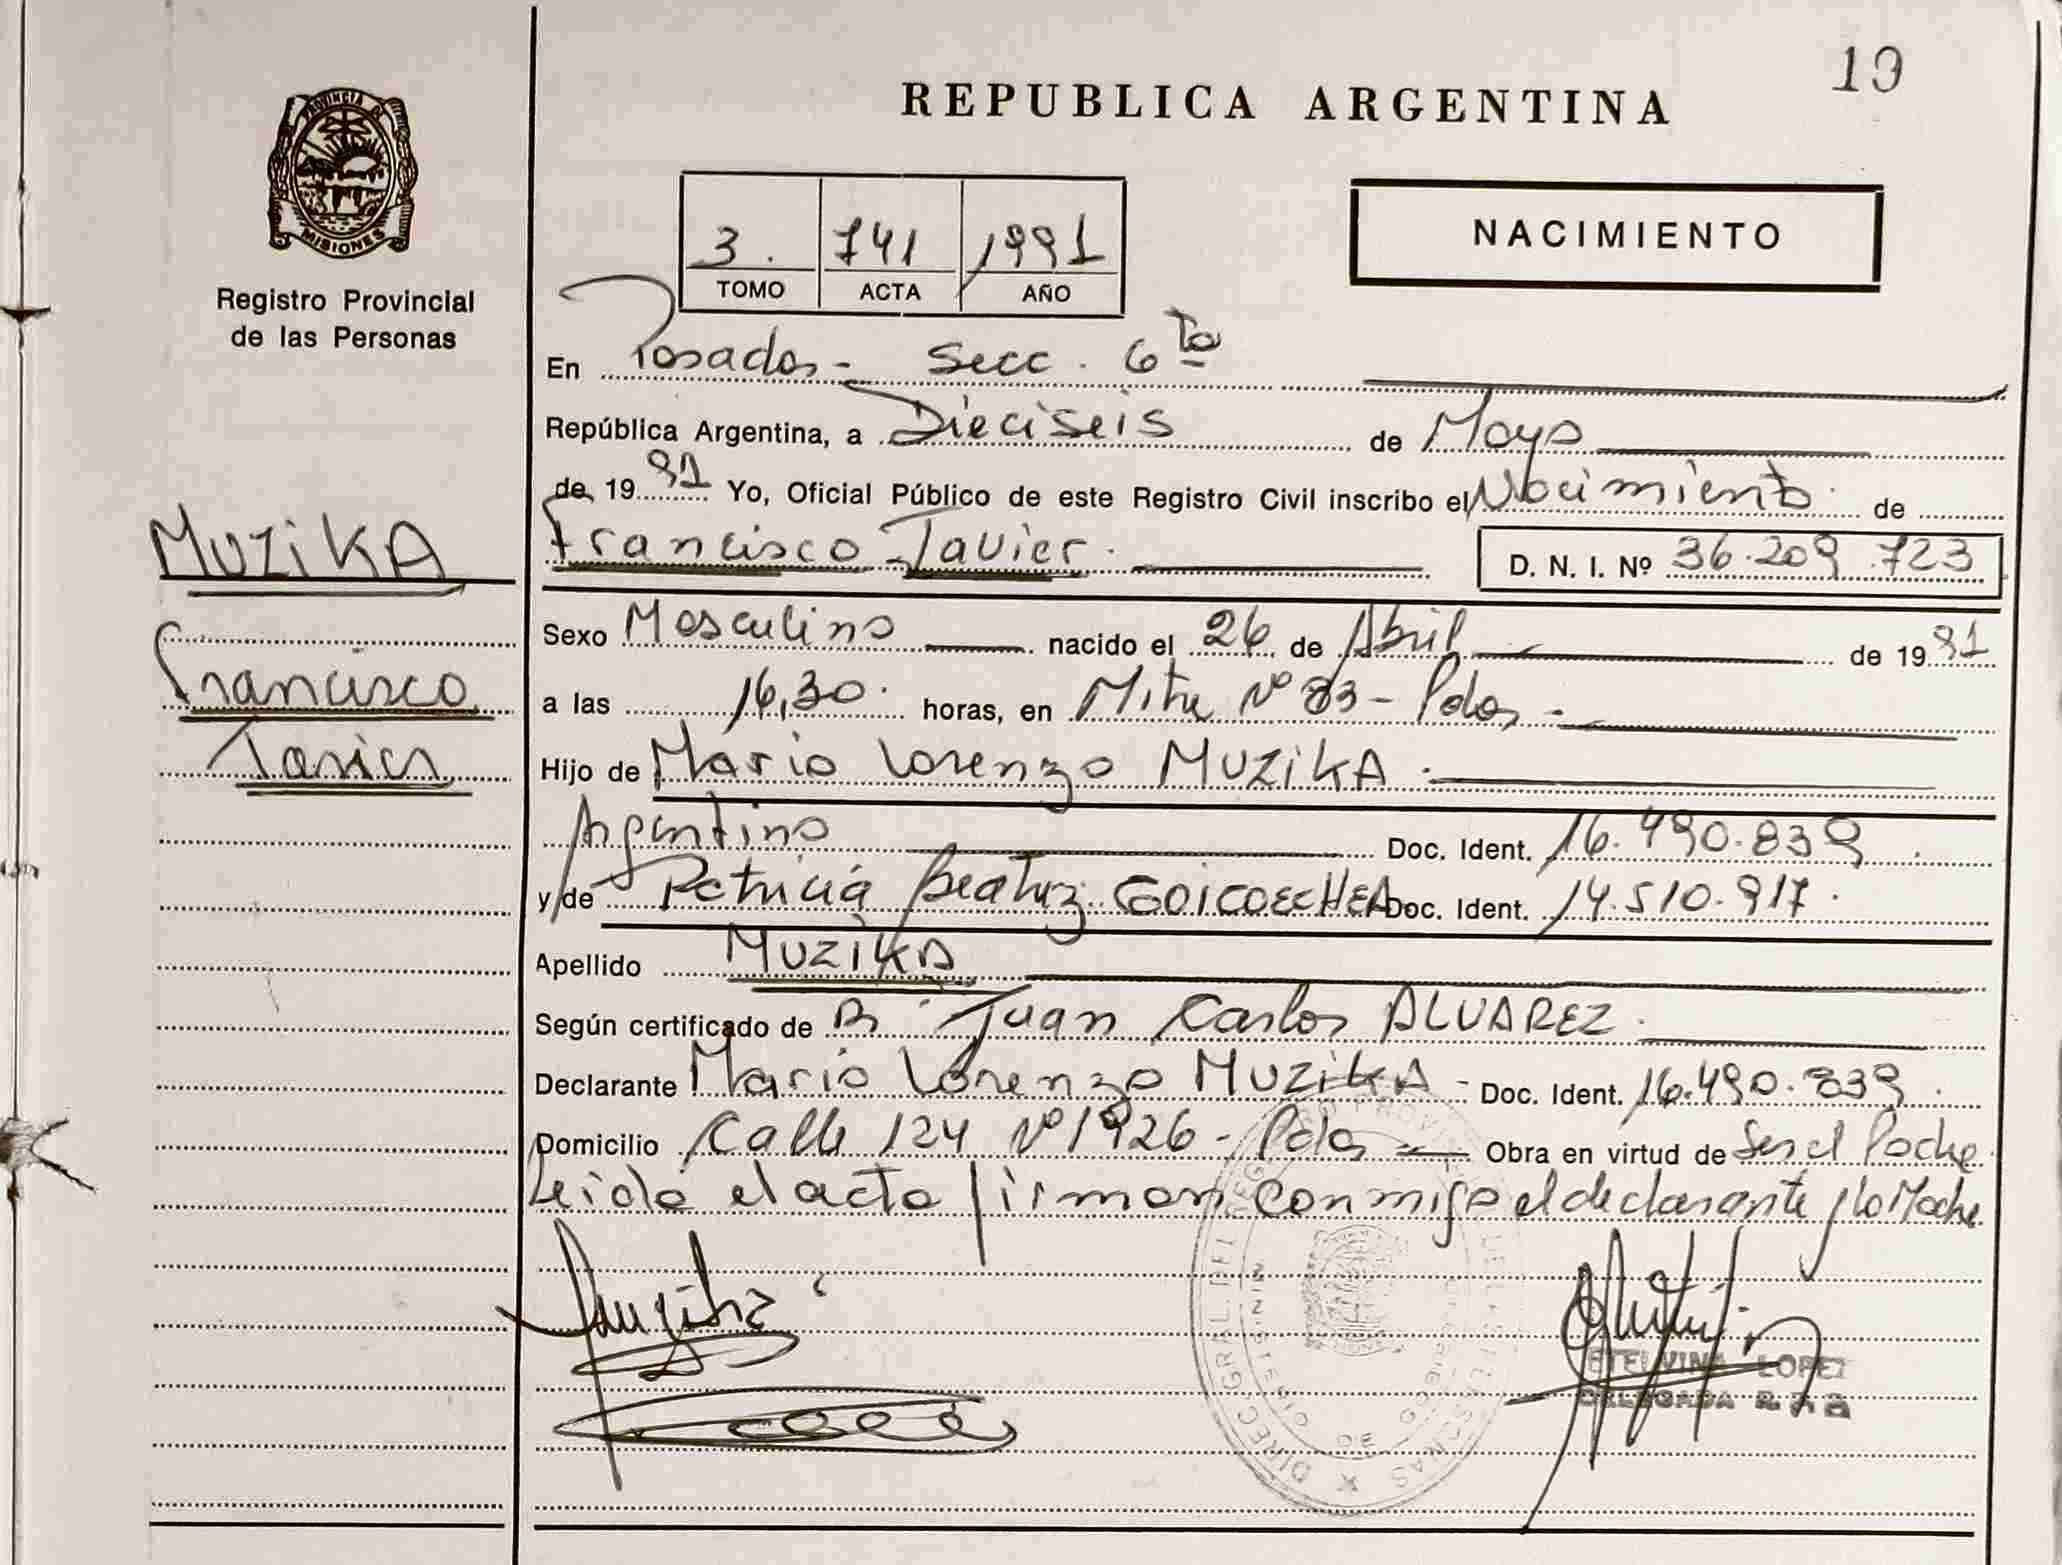 19
REPUBLICA ARGENTINA
PROVINCIA DE
MISIONES
Registro Provincial
de las Personas
3. 741 1991
TOMO ACTA AÑO
NACIMIENTO
En Posadas - Secc. 6ta
República Argentina, a Dieciseis de Mayo
de 1991 Yo, Oficial Público de este Registro Civil inscribo el Nacimiento de
MUZIKA
Francisco Javier.
D. N. I. Nº 36.209.723
Sexo Masculino nacido el 26 de Abril de 1991
Francisco
Javier
a las 16,30. horas, en Mitre Nº 83 - Pdas -
Hijo de Mario Lorenzo MUZIKA.
Argentino Doc. Ident. 16.490.839.
y de Patricia Beatriz GOICOECHEA Doc. Ident. 14.510.917.
Apellido MUZIKA
Según certificado de Dr Juan Carlos ALVAREZ.
Declarante Mario Lorenzo MUZIKA - Doc. Ident. 16.490.839.
Domicilio Calle 124 Nº 1926 - Pdas - Obra en virtud de Ser el Padre
Leido el acta firman conmigo el declarante y la Madre
ETELVINA LOPEZ
DELEGADA